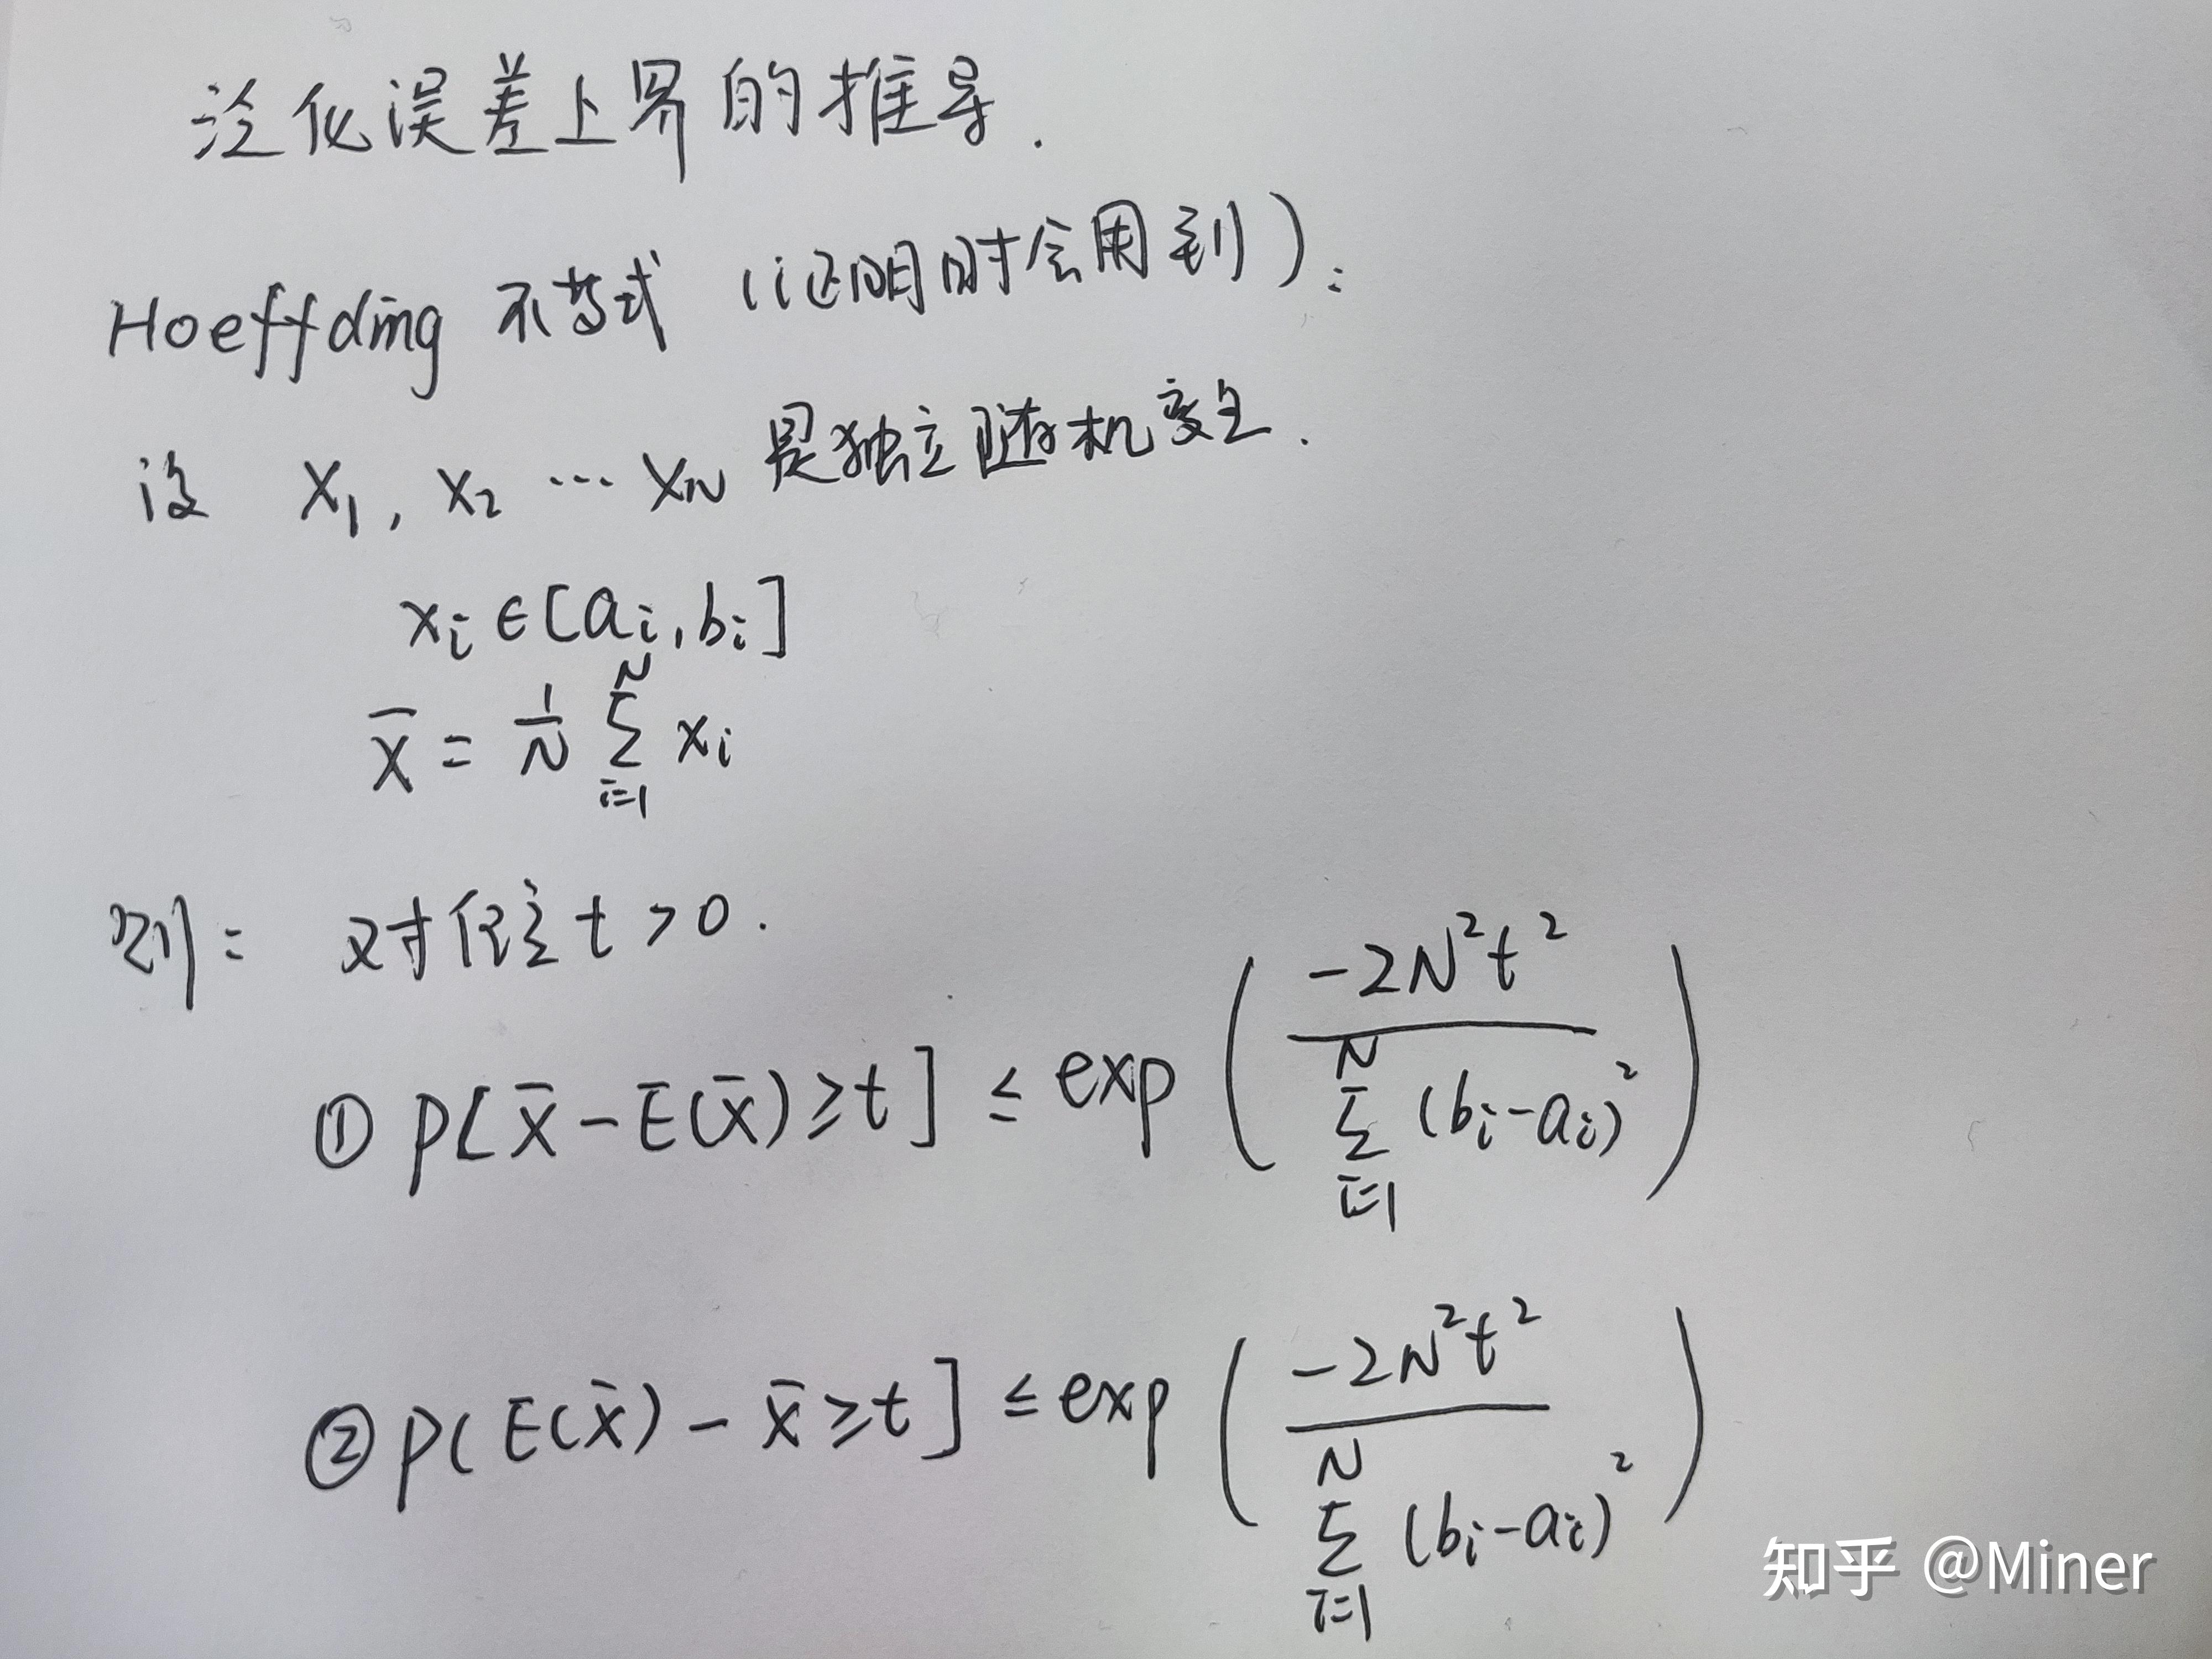 泛化误差上界的推导.
Hoeffding 不等式 (证明时会用到):
设 X₁, X₂ … X_N 是独立随机变量.
x_i ∈ [a_i, b_i]
x̄ = 1/N ∑_{i=1}^{N} x_i
则: 对任意 t > 0.
① P[x̄ - E(x̄) ≥ t] ≤ exp ( -2N²t² / ∑_{i=1}^{N} (b_i - a_i)² )
② P( E(x̄) - x̄ ≥ t] ≤ exp ( -2N²t² / ∑_{i=1}^{N} (b_i - a_i)² )
知乎 @Miner